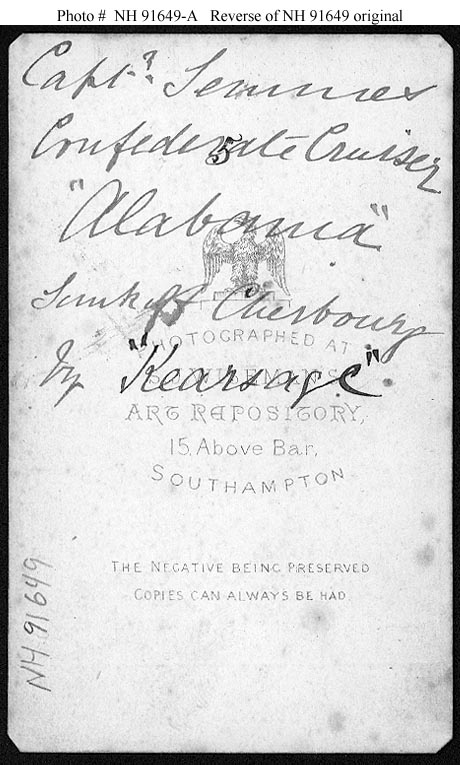 Photo # NH 91649-A Reverse of NH 91649 original
Capt. Semmes
Confederate Cruiser
5
"Alabama"
Sunk off Cherbourg
by "Kearsage"
PHOTOGRAPHED AT
ART REPOSITORY,
15, Above Bar,
SOUTHAMPTON
THE NEGATIVE BEING PRESERVED
COPIES CAN ALWAYS BE HAD.
NH 91649